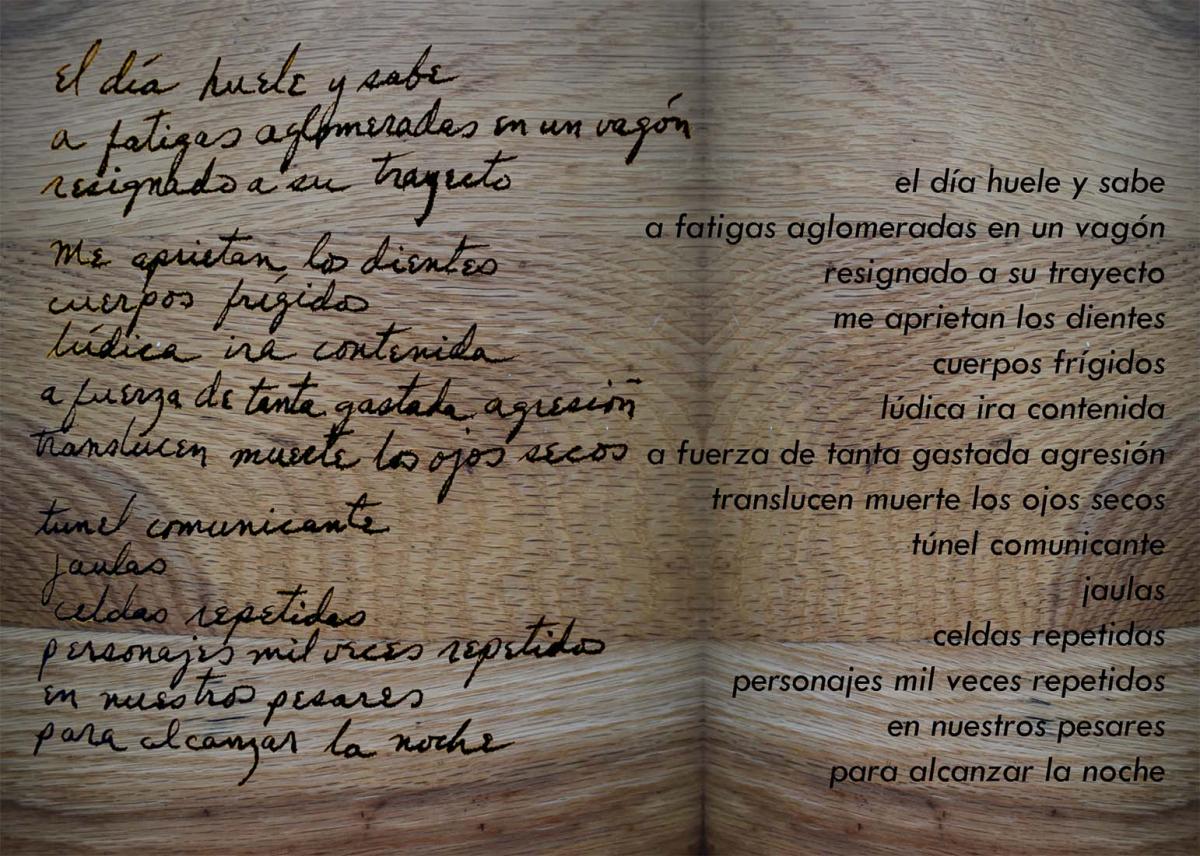 el día huele y sabe
a fatigas aglomeradas en un vagón
resignado a su trayecto
me aprietan los dientes
cuerpos frígidos
lúdica ira contenida
a fuerza de tanta gastada agresión
translucen muerte los ojos secos
tunel comunicante
jaulas
celdas repetidas
personajes mil veces repetidos
en nuestros pesares
para alcanzar la noche
el día huele y sabe
a fatigas aglomeradas en un vagón
resignado a su trayecto
me aprietan los dientes
cuerpos frígidos
lúdica ira contenida
a fuerza de tanta gastada agresión
translucen muerte los ojos secos
túnel comunicante
jaulas
celdas repetidas
personajes mil veces repetidos
en nuestros pesares
para alcanzar la noche